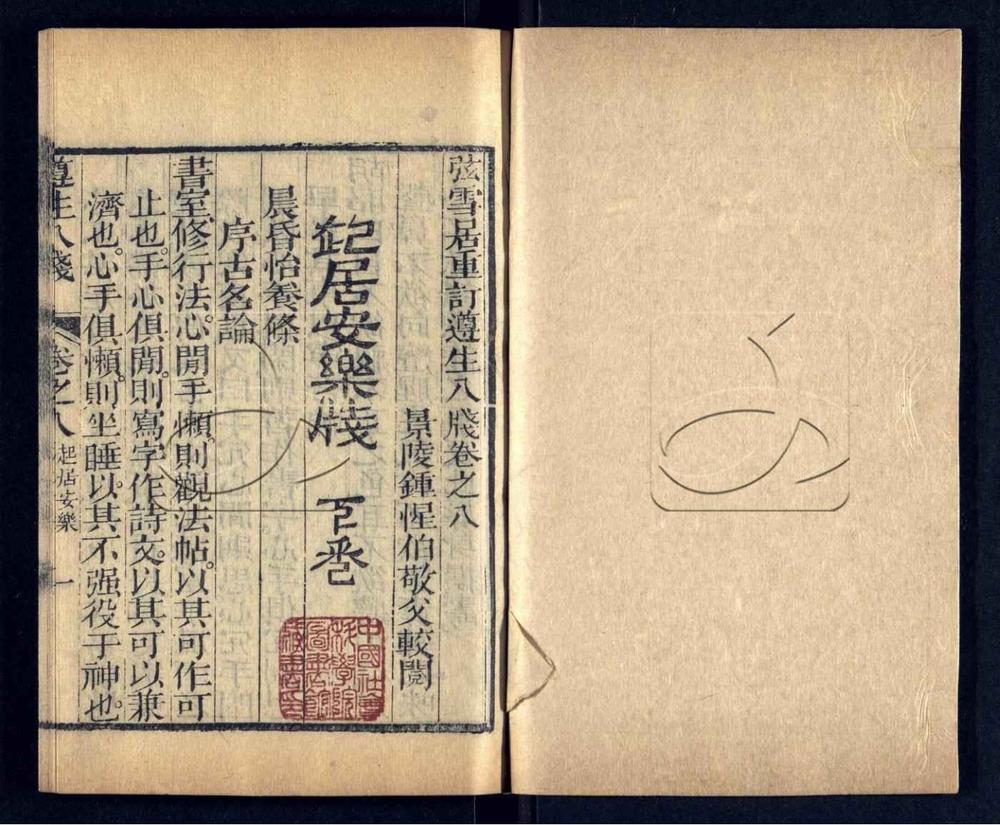 弦雪居重訂遵生八牋卷之八
景陵鍾惺伯敬父較閱
起居安樂牋 下卷
中國社會
科學院
圖書館
藏書印
晨昏怡養條
序古名論
書室修行法。心閒手懶。則觀法帖。以其可作可
止也。手心俱閒。則寫字作詩文。以其可以兼
濟也。心手俱懶。則坐睡。以其不强役于神也。
遵生八牋 卷之八 起居安樂 一